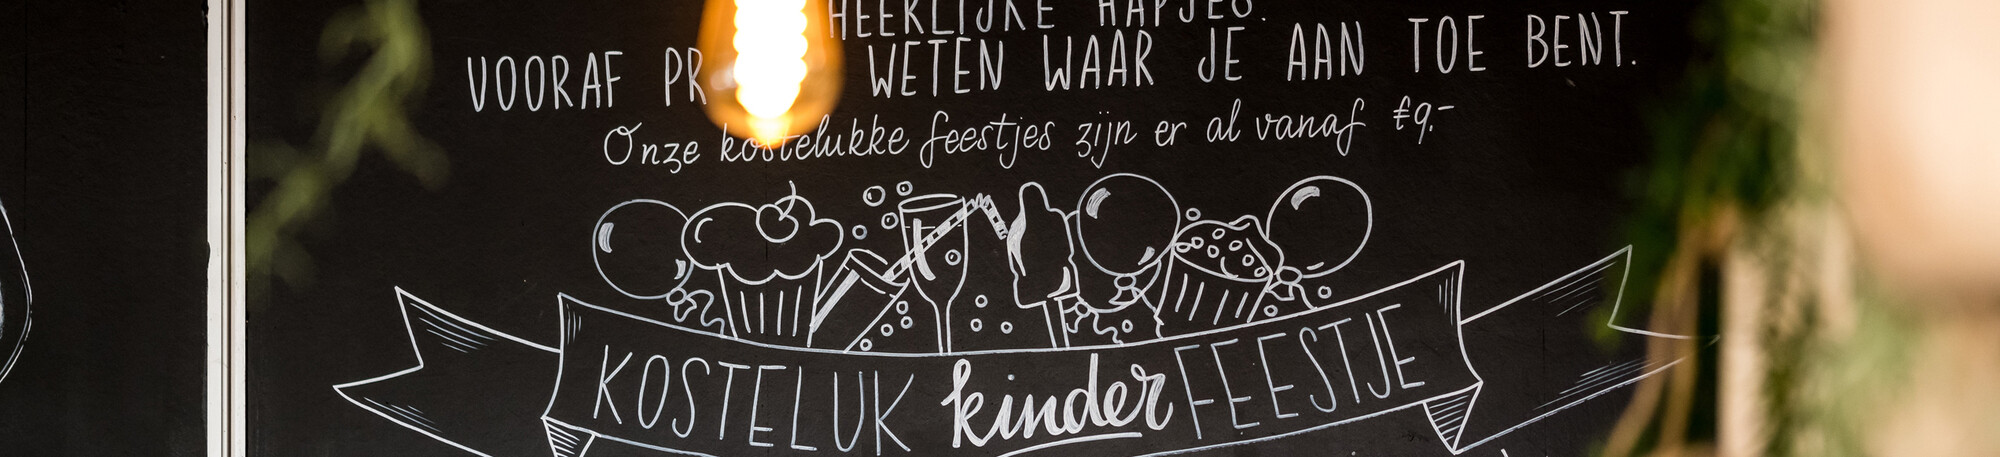 HEERLIJKE HAPJES.
VOORAF WETEN WAAR JE AAN TOE BENT.
Onze kostelukke feestjes zijn er al vanaf €9,-
KOSTELUK kinder FEESTJE